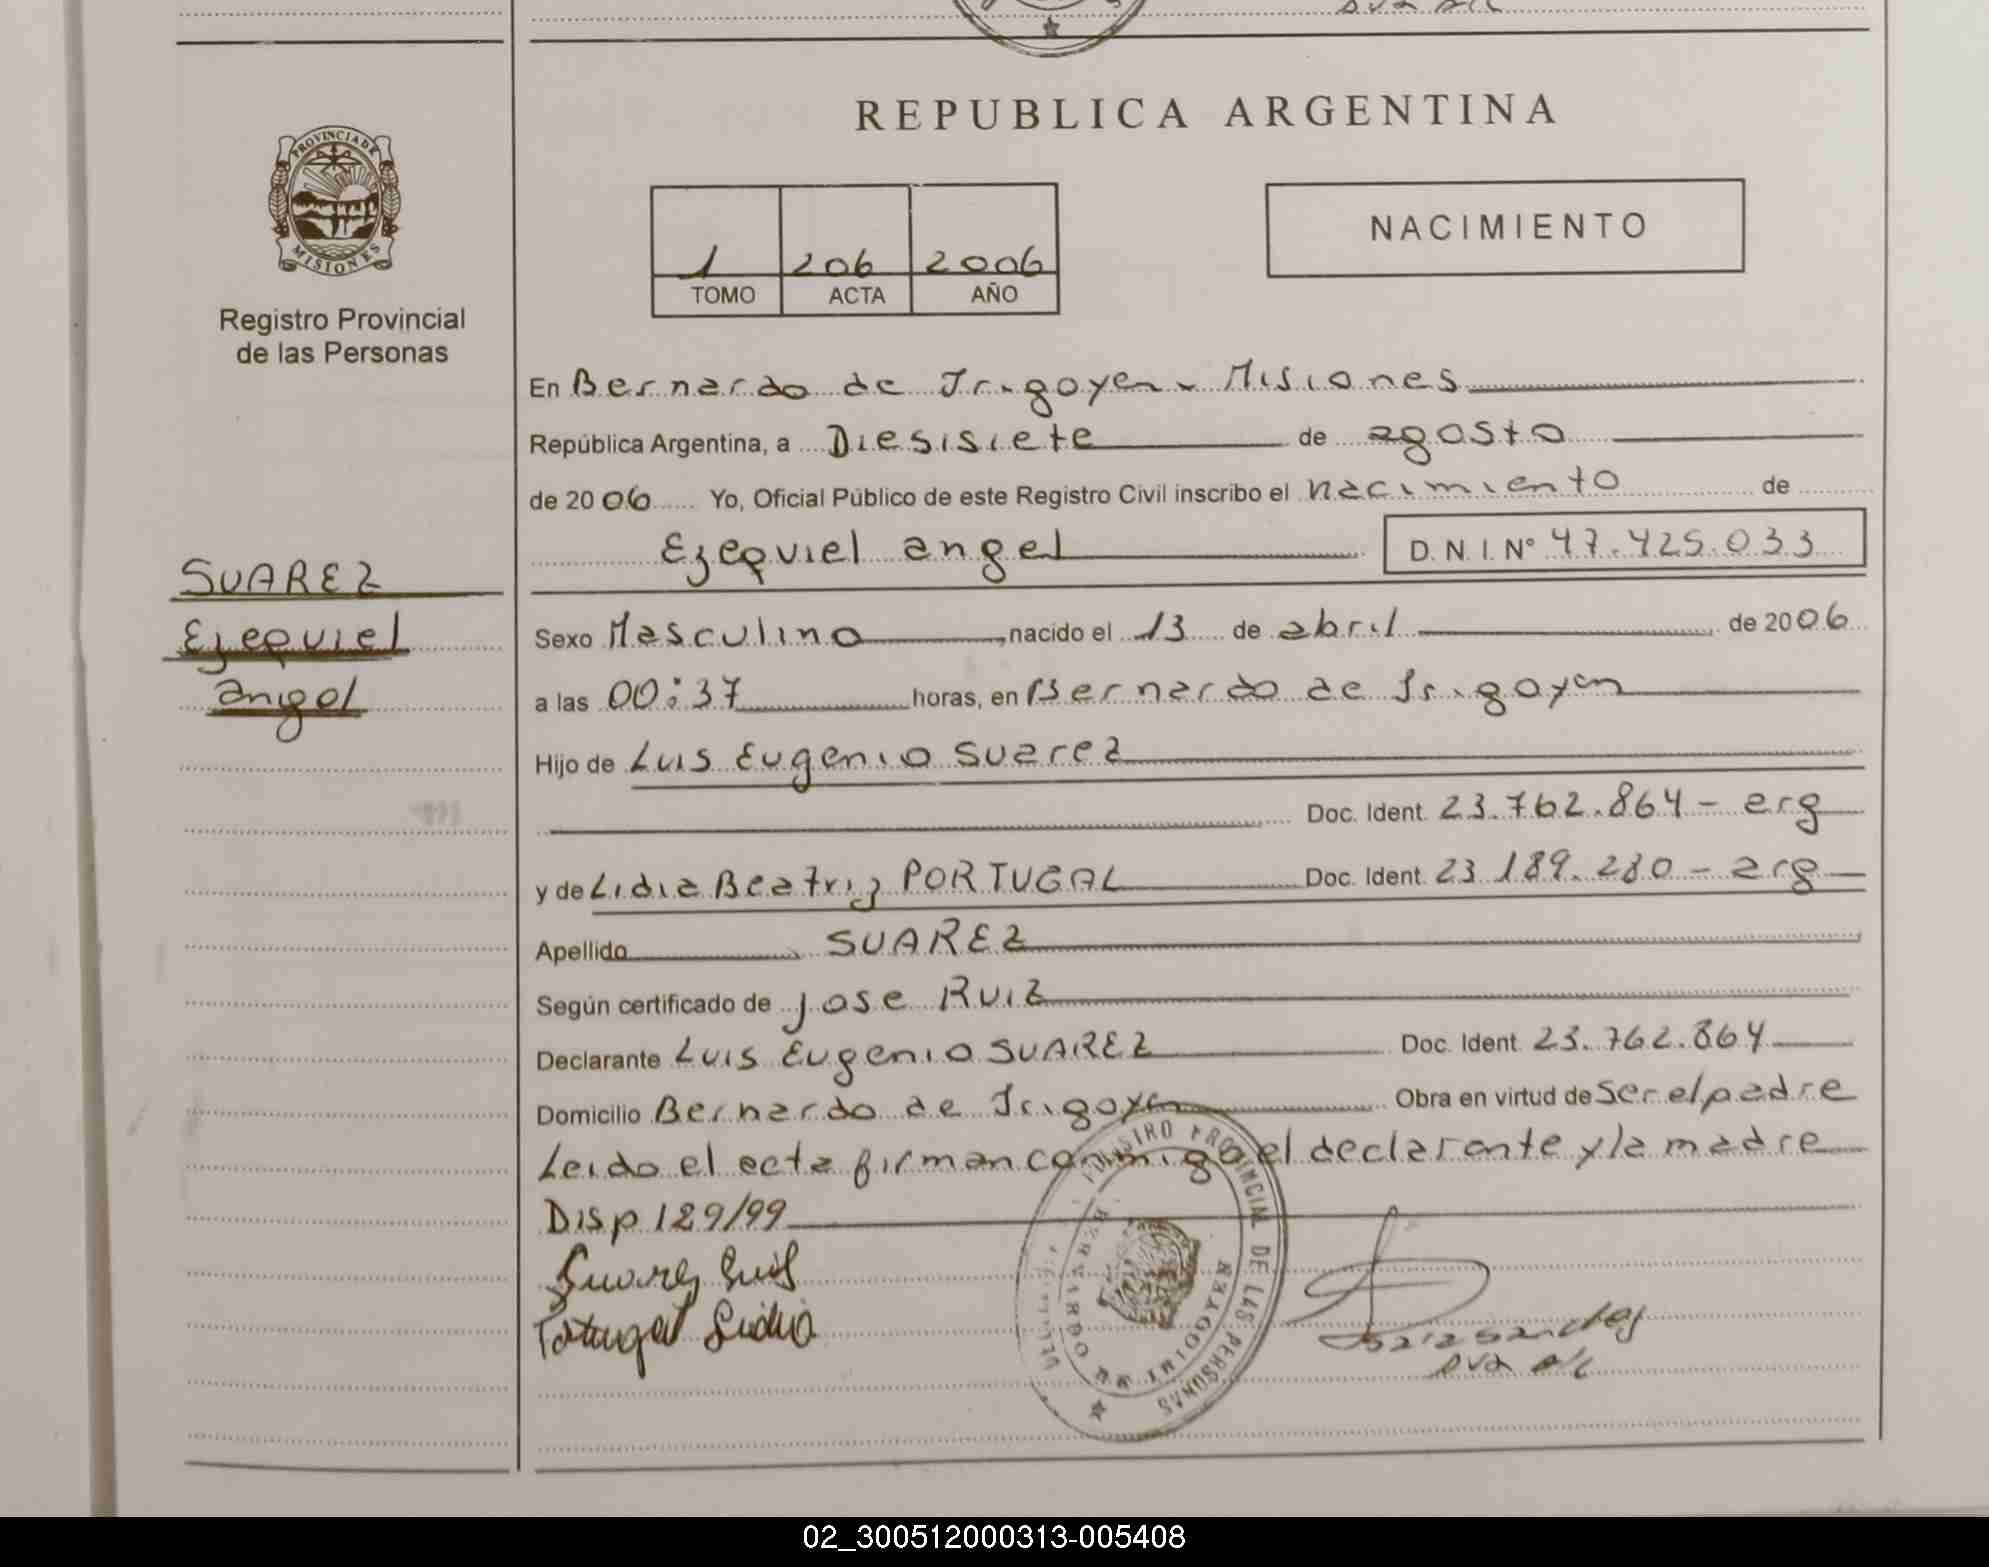 REPUBLICA ARGENTINA
PROVINCIA DE
MISIONES
Registro Provincial
de las Personas
NACIMIENTO
1 206 2006
TOMO ACTA AÑO
En Bernardo de Irigoyen - Misiones
República Argentina, a Diesisiete de agosto
de 2006 Yo, Oficial Público de este Registro Civil inscribo el nacimiento de
Ezequiel angel D. N. I. Nº 47.425.033
SUAREZ
Ezequiel
angel
Sexo Masculino, nacido el 13 de abril de 2006
a las 00:37 horas, en Bernardo de Irigoyen
Hijo de Luis Eugenio Suarez
Doc. Ident. 23.762.864 - arg
y de Lidia Beatriz PORTUGAL Doc. Ident. 23.189.280 - arg
Apellido SUAREZ
Según certificado de Jose Ruiz
Declarante Luis Eugenio SUAREZ Doc. Ident. 23.762.864
Domicilio Bernardo de Irigoyen Obra en virtud de ser el padre
Leido el acta firman conmigo el declarante y la madre
Disp 129/99
Suarez Luis
Portugal Lidia
REGISTRO PROVINCIAL DE LAS PERSONAS
BERNARDO DE IRIGOYEN
02_300512000313-005408